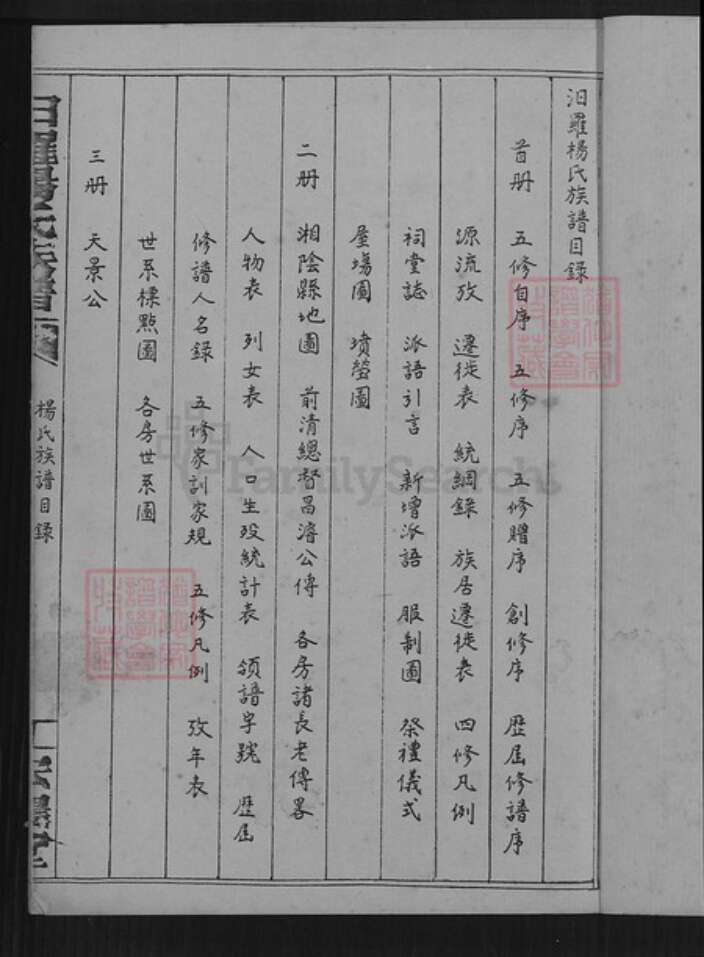 汨羅楊氏族譜目録
首册 五修自序 五修序 五修贈序 創修序 歷屆修譜序
源流攷 遷徙表 統綱録 族居遷徙表 四修凡例
祠堂誌 派語引言 新增派語 服制圖 祭禮儀式
屋塲圖 墳瑩圖
二册 湘陰縣地圖 前清總督昌濬公傳 各房諸長老傳畧
人物表 列女表 人口生殁統計表 領譜字號 歷屆
修譜人名録 五修家訓家規 五修凡例 攷年表
世系標點圖 各房世系圖
三册 天景公
汨羅楊氏族譜
楊氏族譜目録
FamilySearch